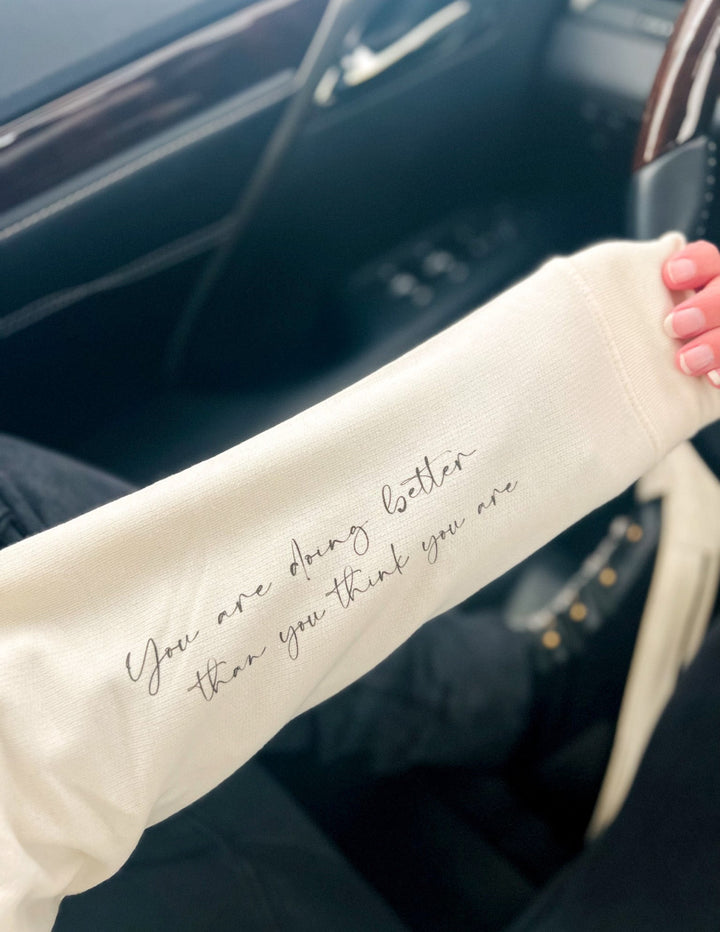 You are doing better
than you think you are